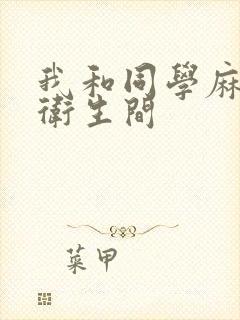 我和同學麻
衛生間
菜甲